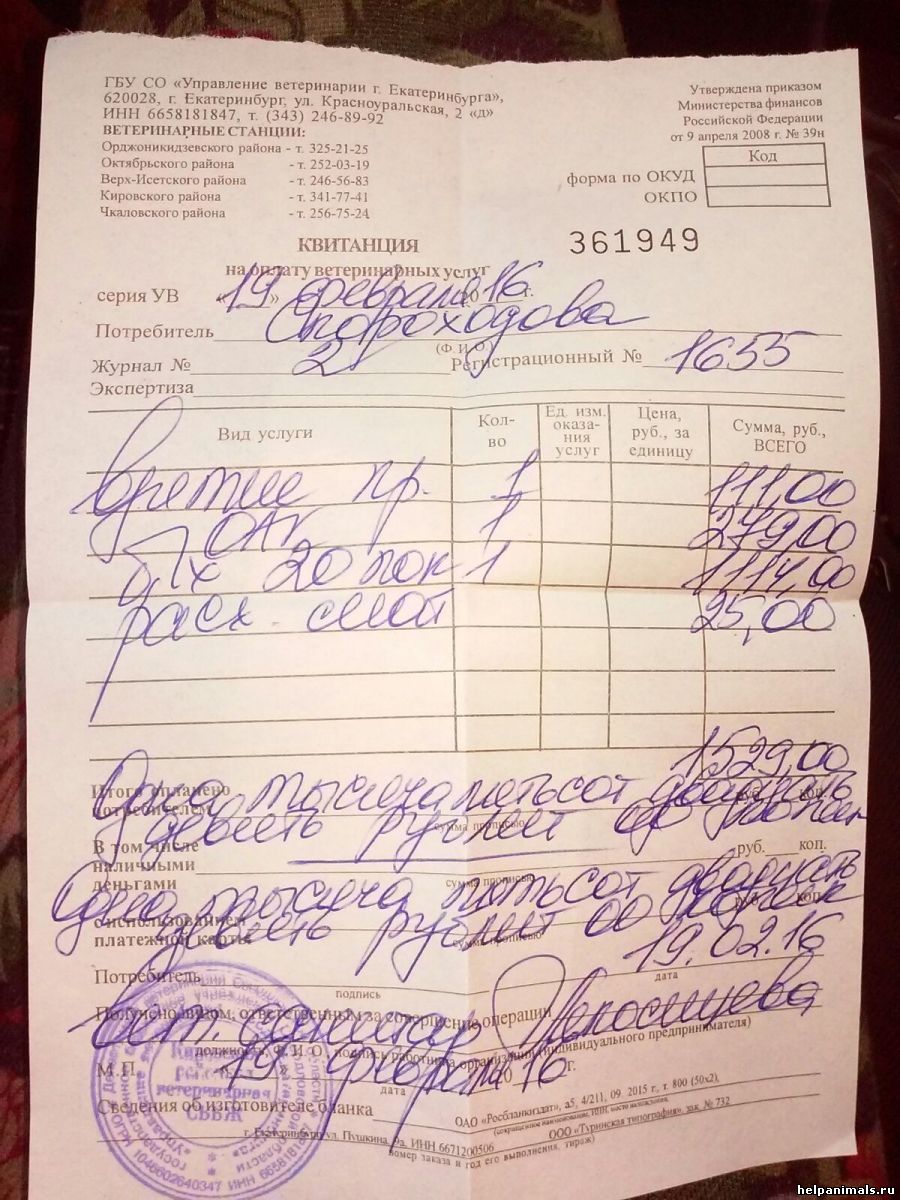 ГБУ СО «Управление ветеринарии г. Екатеринбурга»,
620028, г. Екатеринбург, ул. Красноуральская, 2 «д»
ИНН 6658181847, т. (343) 246-89-92
ВЕТЕРИНАРНЫЕ СТАНЦИИ:
Орджоникидзевского района - т. 325-21-25
Октябрьского района - т. 252-03-19
Верх-Исетского района - т. 246-56-83
Кировского района - т. 341-77-41
Чкаловского района - т. 256-75-24
Утверждена приказом
Министерства финансов
Российской Федерации
от 9 апреля 2008 г. № 39н
Код
форма по ОКУД
ОКПО
361949
КВИТАНЦИЯ
на оплату ветеринарных услуг
серия УВ «19» февраля 2016 г.
Потребитель Скороходова
(Ф.и.о)
Журнал № 2 Регистрационный № 1655
Экспертиза
Вид услуги Кол-во Ед. изм. оказания услуг Цена, руб., за единицу Сумма, руб., ВСЕГО
взятие кр. 1 111,00
ОАК 1 279,00
б/х 20 пок 1 1114,00
расх 25,00
1529,00
Итого оплачено потребителем Одна тысяча пятьсот двадцать руб. коп.
девять рублей 00 копеек
сумма прописью
В том числе
наличными деньгами руб. коп.
сумма прописью
Одна тысяча пятьсот двадцать
с использованием платежной карты девять рублей 00 копеек руб. коп.
сумма прописью
19.02.16
Потребитель
подпись дата
Получено лицом, ответственным за совершение операции
вет. санитар
должность, Ф.И.О., подпись работника организации (индивидуального предпринимателя)
М.П. «19» февраля 2016 г.
дата
Сведения об изготовителе бланка ОАО «Росбланкиздат», а5, 4/211, 09. 2015 г., т. 800 (50х2),
г. Екатеринбург ул. Пушкина, 9а, ИНН 6671200506 ООО «Туринская типография», зак. № 732
номер заказа и год его выполнения, тираж)
helpanimals.ru